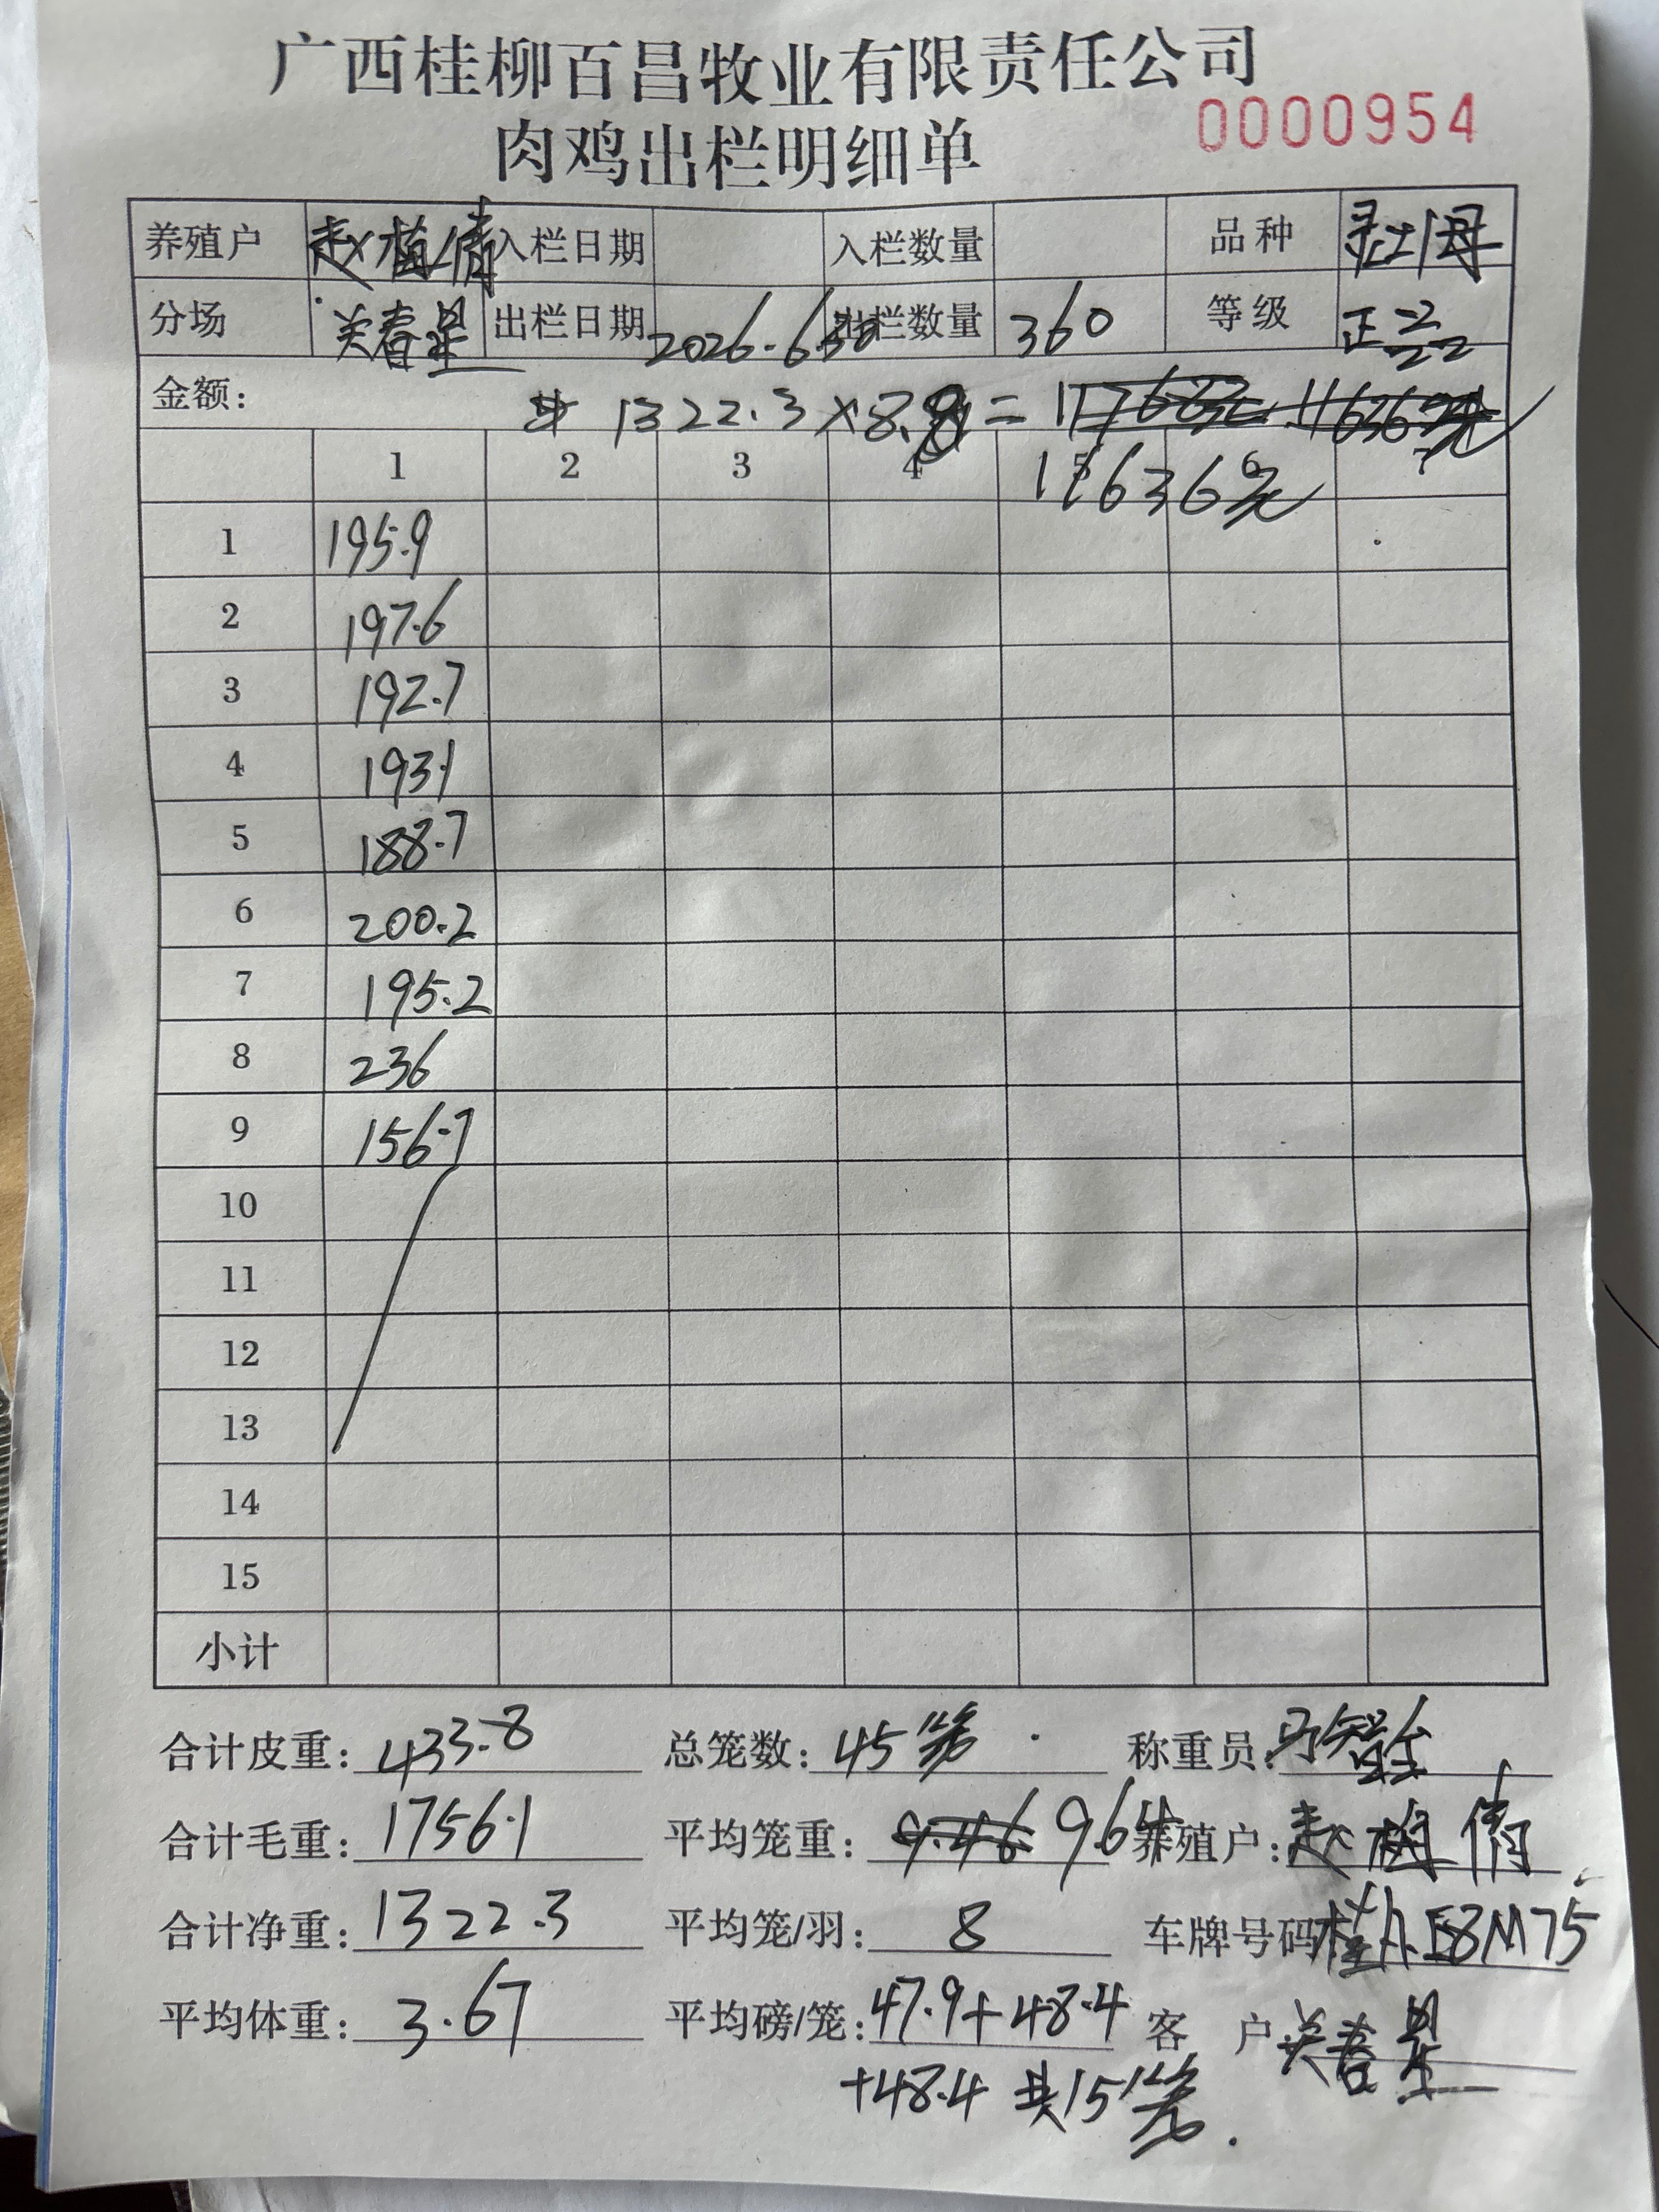 广西桂柳百昌牧业有限责任公司
肉鸡出栏明细单
0000954
养殖户 赵植倩 入栏日期 入栏数量 品种
分场 关春星 出栏日期 2026.6.30 出栏数量 360 等级 正二
金额: 1322.3×8.8= 11636元
1 2 3 4 5 6 7
1 195.9
2 197.6
3 192.7
4 193.1
5 188.7
6 200.2
7 195.2
8 236
9 156.7
10
11
12
13
14
15
小计
合计皮重: 433.8 总笼数: 45笼 称重员:
合计毛重: 1756.1 平均笼重: 9.46 9.64 养殖户: 赵植倩
合计净重: 1322.3 平均笼/羽: 8 车牌号码 桂A.E8M75
平均体重: 3.67 平均磅/笼: 47.9+48.4 客 户: 关春星
+48.4 共15笼.